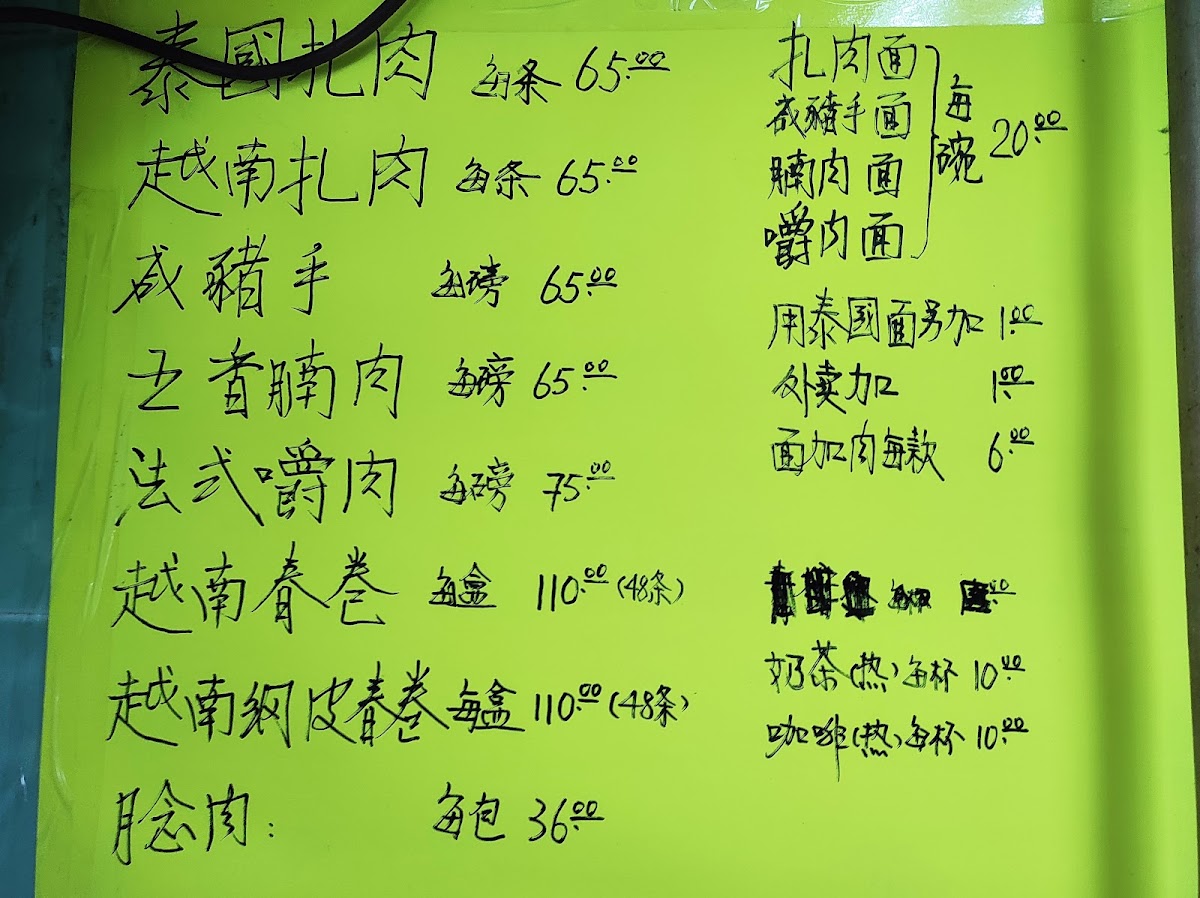 泰國扎肉 每条 65.00
越南扎肉 每条 65.00
咸豬手 每磅 65.00
五香腩肉 每磅 65.00
法式嚼肉 每磅 75.00
越南春卷 每盒 110.00 (48条)
越南網皮春卷 每盒 110.00 (48条)
腍肉: 每包 36.00
扎肉面
咸豬手面
腩肉面
嚼肉面
每碗 20.00
用泰國面另加 1.00
外卖加 1.00
面加肉每款 6.00
奶茶(热)每杯 10.00
咖啡(热)每杯 10.00